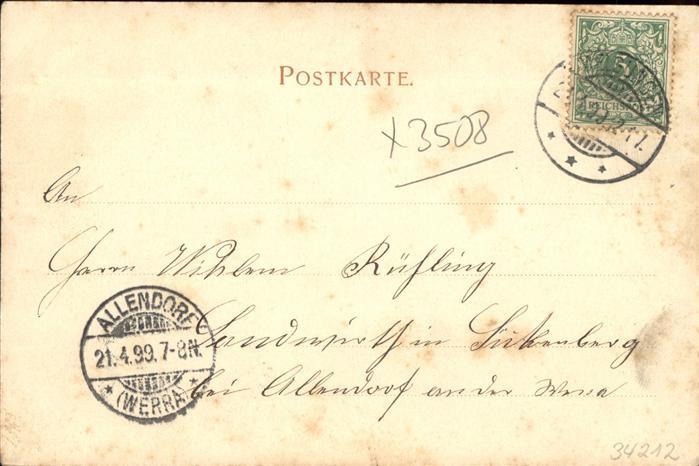 POSTKARTE.
5
REICHSPOST
x3508
An
Herrn Wihlem Rühling
Landwirth in Sickenberg
bei Allendorf an der Werra
ALLENDORF
21.4.99.7-8N.
(WERRA)
34212